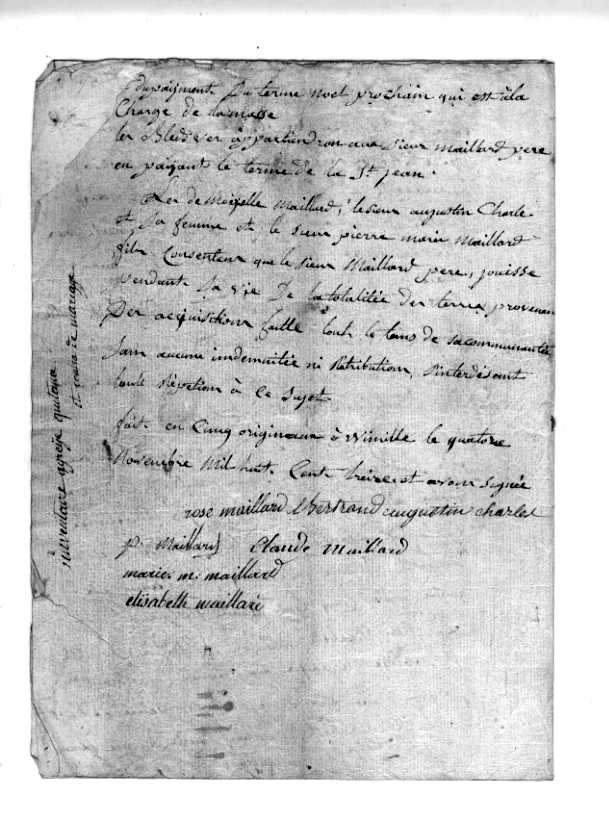 dupaiment Du terme noel prochain qui est àla
Charge de lamasse
les Bleds ver appartiendron aux Sieur maillard pere
en paiyant le terme de la St jean.
Les de Moiselle Maillard, lesieur augustin Charle
et Sa femme et le Sieur pierre marie Maillard
fils Consenteur que le Sieur Maillard pere, jouisse
pendant Sa vie De la totalitée des terres provenan
Des acquisitions faitte Sout le tans de sacommunautée
Sans aucune indemnitée ni Retribution, S'interdisant
toute Répétion à Ce Sujet
fait en Cinq originaux à Wimille le quatorze
Novembre Mil huit Cent treize et avons Signée
rose maillard Bertrand augustin Charles
p. Maillard Claude maillard
marie. m. maillard
elisabelh maillard
inventaire
et contra de mariage